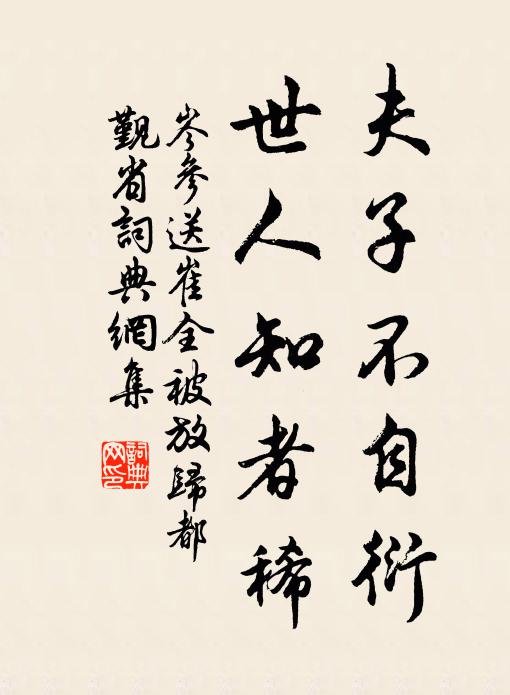 夫子不自衍
世人知者稀
岑參送崔全被放歸都
覲省詞典網集
詞典
网印